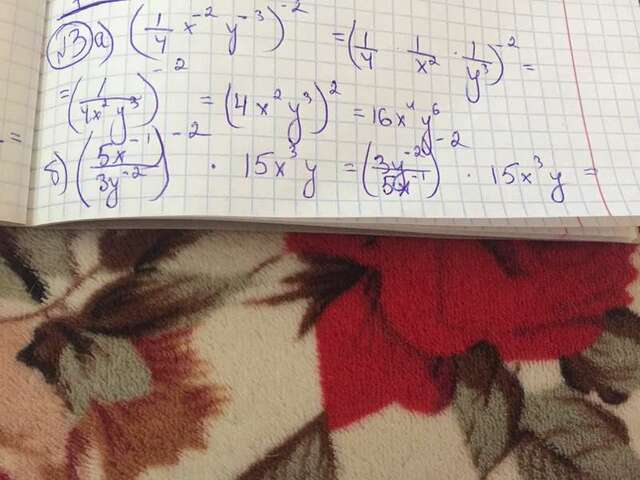 №3 а) (1/4 x⁻² y⁻³)⁻² = (1/4 · 1/x² · 1/y³)⁻² =
= (1/4x²y³)⁻² = (4x²y³)² = 16x⁴y⁶
б) (5x⁻¹/3y⁻²)⁻² · 15x³y = ( )⁻² · 15x³y =